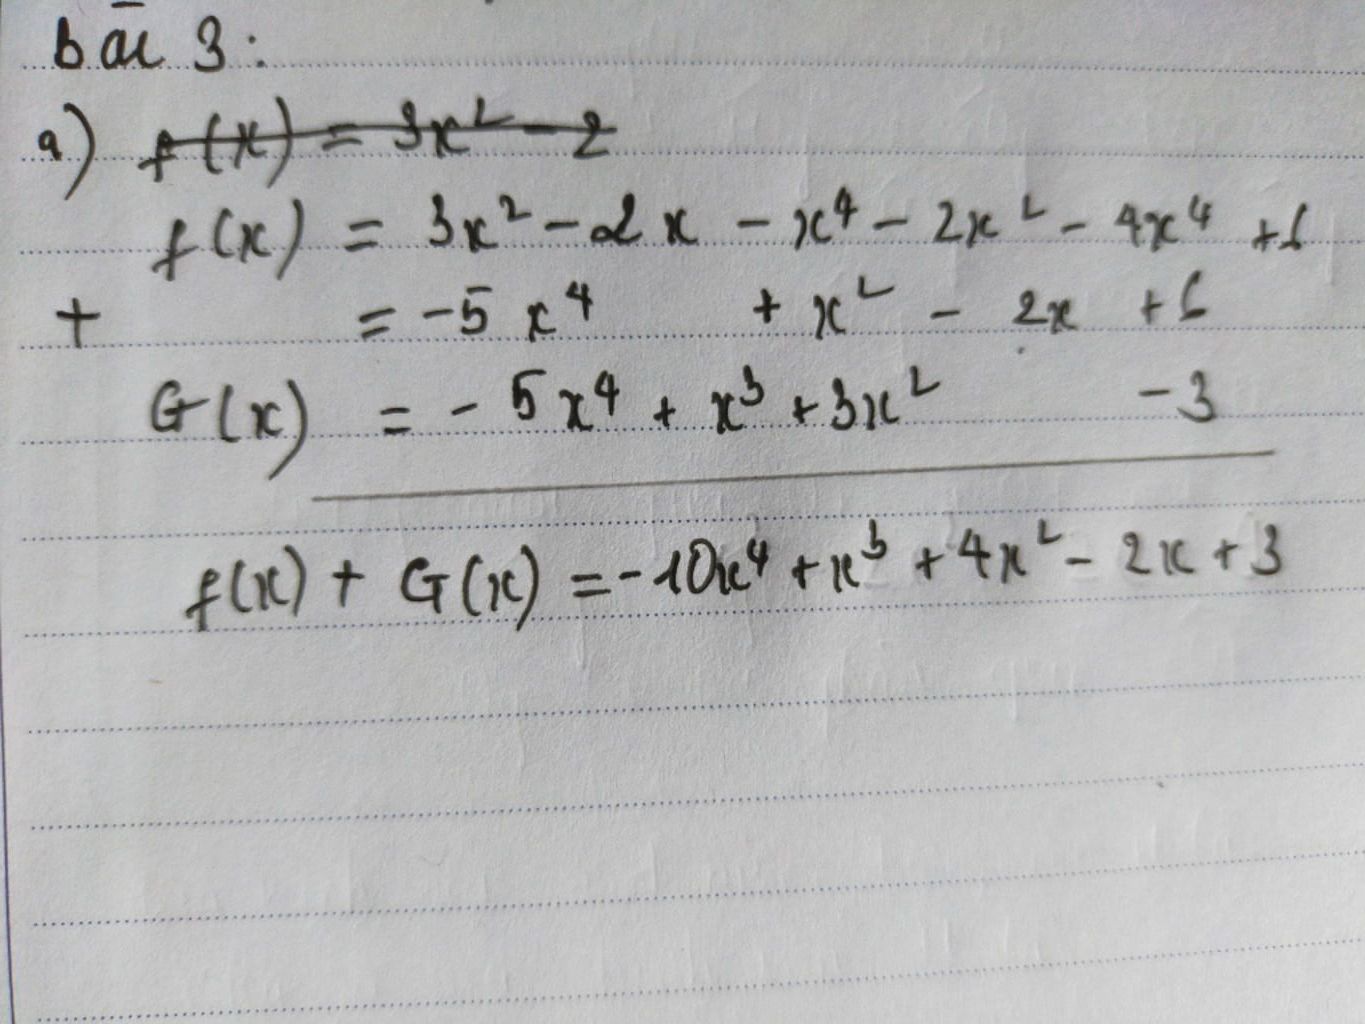 bài 3:
a) f(x) = 3x² - 2
f(x) = 3x² - 2x - x⁴ - 2x² - 4x⁴ + 6
+ = -5x⁴ + x² - 2x + 6
G(x) = - 5x⁴ + x³ + 3x² - 3
f(x) + G(x) = -10x⁴ + x³ + 4x² - 2x + 3